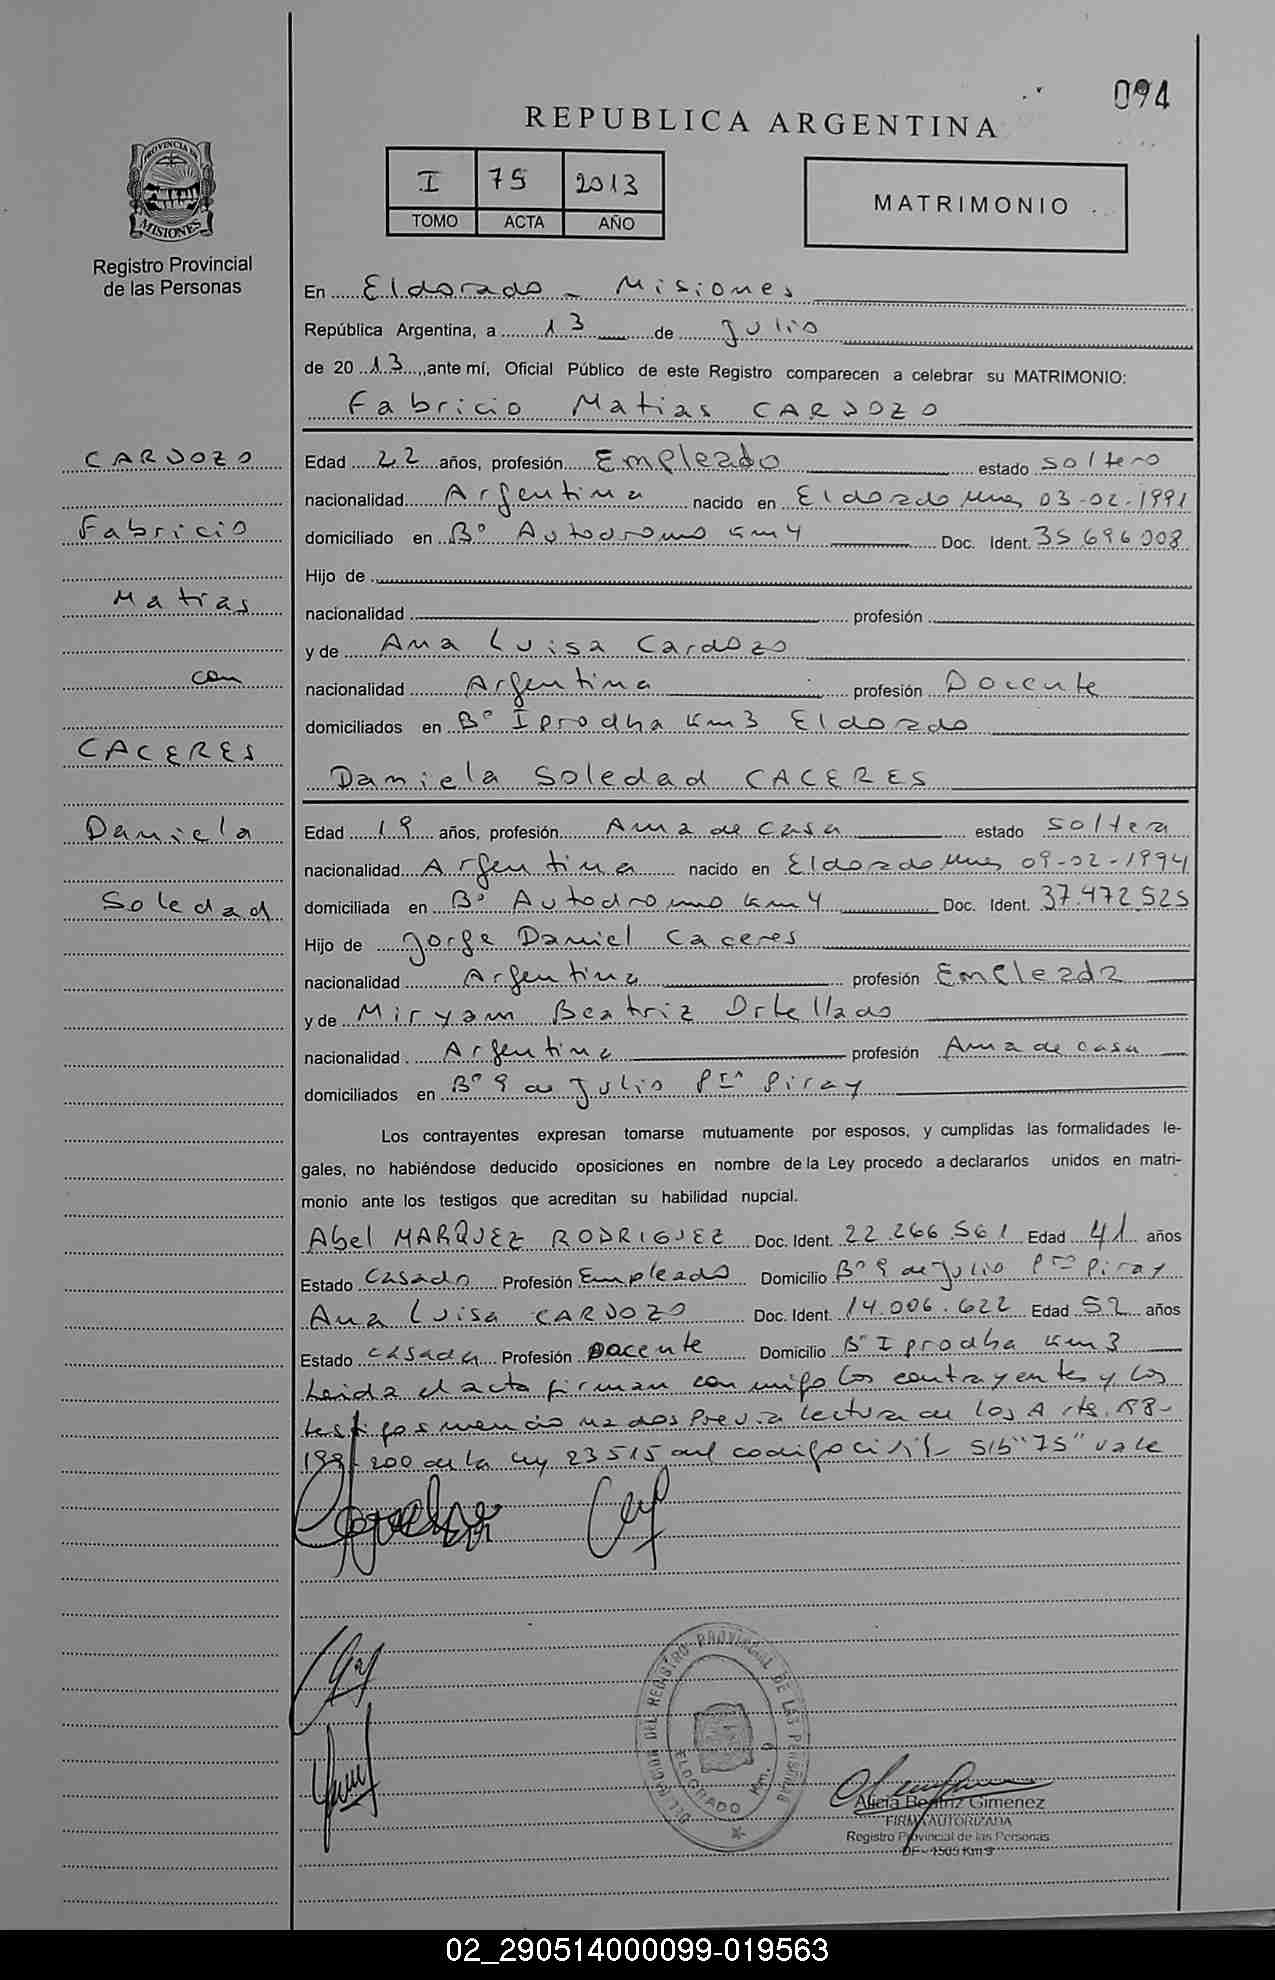 094
REPUBLICA ARGENTINA
PROVINCIA DE
MISIONES
Registro Provincial
de las Personas
I 75 2013
TOMO ACTA AÑO
MATRIMONIO
En Eldorado - Misiones
República Argentina, a 13 de Julio
de 20 13, ante mí, Oficial Público de este Registro comparecen a celebrar su MATRIMONIO:
Fabricio Matias CARDOZO
CARDOZO
Fabricio
Matias
con
CACERES
Daniela
Soledad
Edad 22 años, profesión Empleado estado soltero
nacionalidad Argentina nacido en Eldorado Mnes 03-02-1991
domiciliado en Bº Autodromo Km 4 Doc. Ident. 35 696 008
Hijo de
nacionalidad profesión
y de Ana Luisa Cardozo
nacionalidad Argentina profesión Docente
domiciliados en Bº Iprodha Km 3 Eldorado
Daniela Soledad CACERES
Edad 19 años, profesión Ama de casa estado soltera
nacionalidad Argentina nacido en Eldorado Mnes 09-02-1994
domiciliada en Bº Autodromo Km 4 Doc. Ident. 37.472.525
Hijo de Jorge Daniel Caceres
nacionalidad Argentina profesión Empleada
y de Miryam Beatriz Ortellado
nacionalidad Argentina profesión Ama de casa
domiciliados en Bº 9 de Julio Pto Piray
Los contrayentes expresan tomarse mutuamente por esposos, y cumplidas las formalidades le-
gales, no habiéndose deducido oposiciones en nombre de la Ley procedo a declararlos unidos en matri-
monio ante los testigos que acreditan su habilidad nupcial.
Abel MARQUEZ RODRIGUEZ Doc. Ident. 22.266.561 Edad 41 años
Estado Casado Profesión Empleado Domicilio Bº 9 de Julio Pto Piray
Ana Luisa CARDOZO Doc. Ident. 14.006.622 Edad 52 años
Estado casada Profesión Docente Domicilio Bº Iprodha Km 3
Leida el acta firman conmigo los contrayentes y los
testigos mencionados previa lectura de los Arts. 198-
199-200 de la ley 23515 del codigo civil- S/b "75" vale
DEL REGISTRO PROVINCIAL DE LAS PERSONAS
ELDORADO Km. 9
Alicia Beatriz Gimenez
FIRMA AUTORIZADA
Registro Provincial de las Personas
DF - 1505 Km 9
02_290514000099-019563